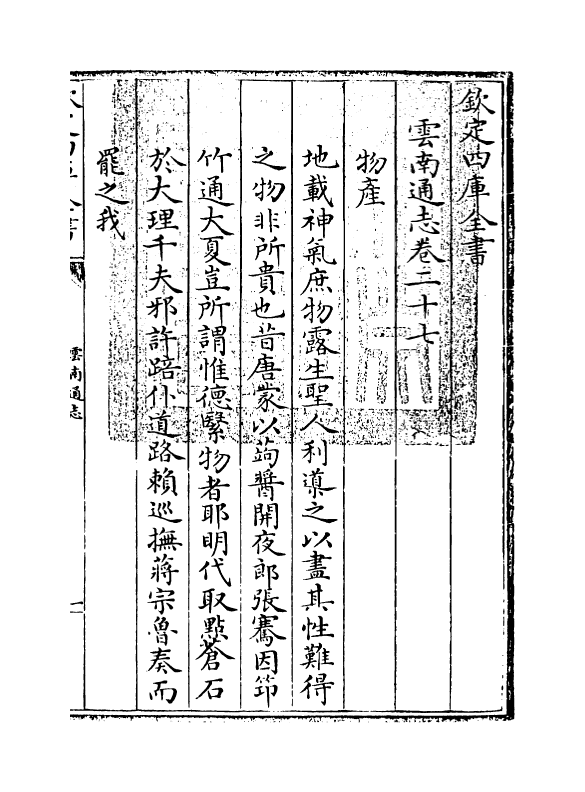 欽定四庫全書
雲南通志卷二十七
物產
地載神氣庶物露生聖人利導之以盡其性難得
之物非所貴也昔唐蒙以蒟醬開夜郎張騫因笻
竹通大夏豈所謂惟德繄物者耶明代取點蒼石
於大理千夫邪許踣仆道路賴巡撫蔣宗魯奏而
罷之我
雲南通志
一